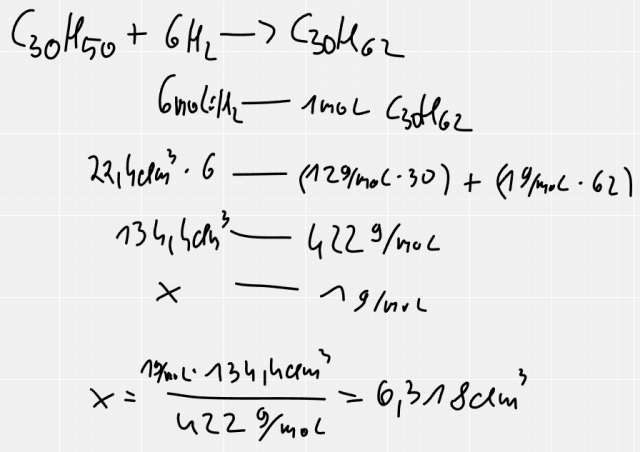 C₃₀H₅₀ + 6H₂ → C₃₀H₆₂
6mol H₂ — 1mol C₃₀H₆₂
22,4dm³ · 6 — (12g/mol · 30) + (1g/mol · 62)
134,4dm³ — 422 g/mol
x — 1g/mol
x = (1g/mol · 134,4dm³) / (422 g/mol) = 6,318dm³